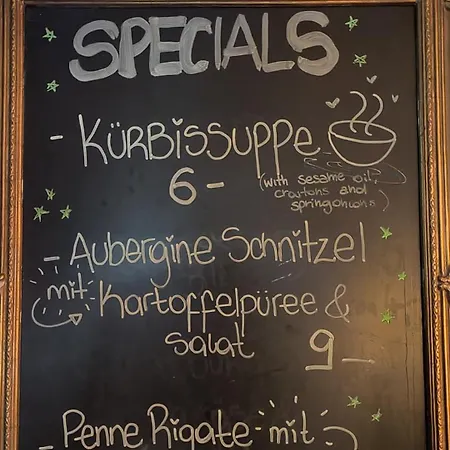 SPECIALS
- KÜRBISSUPPE
6-
(with sesame oil,
croutons and
springonions)
- Aubergine Schnitzel
mit Kartoffelpüree &
salat 9-
- Penne Rigate mit